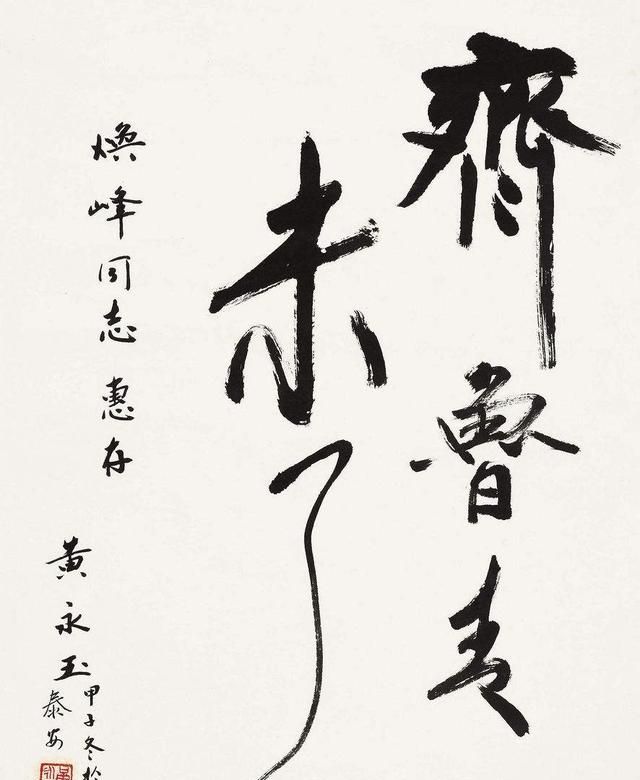 齊魯青
未了
煥峰同志惠存
黃永玉
甲子冬於
泰安